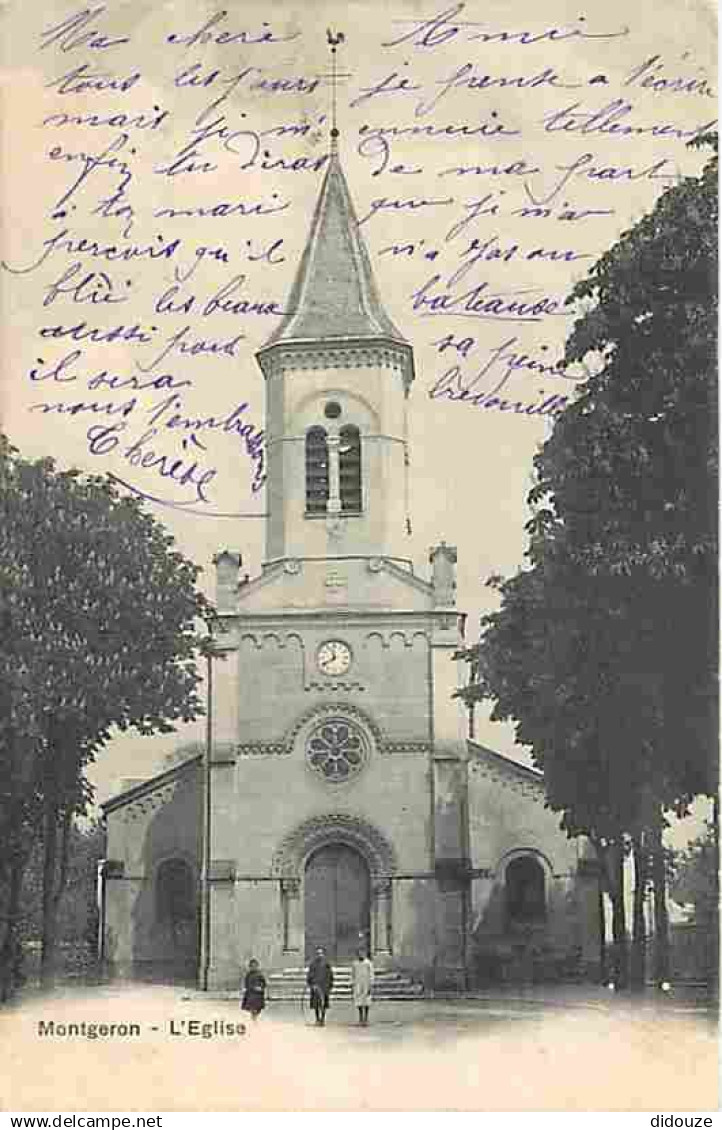 Ma chère Amie
tous les jours je prente a t'écrire
mais j'ai m'ennuerie tellement
enfin tu diras de ma part
à toy mari que j'ai m'a
perçois qu'il n'a pas ou
blié les beaux bateause
aussi pour sa peine
il sera bredouille
nous t'embrassons
Thérèse
Montgeron - L'Eglise
© didouze